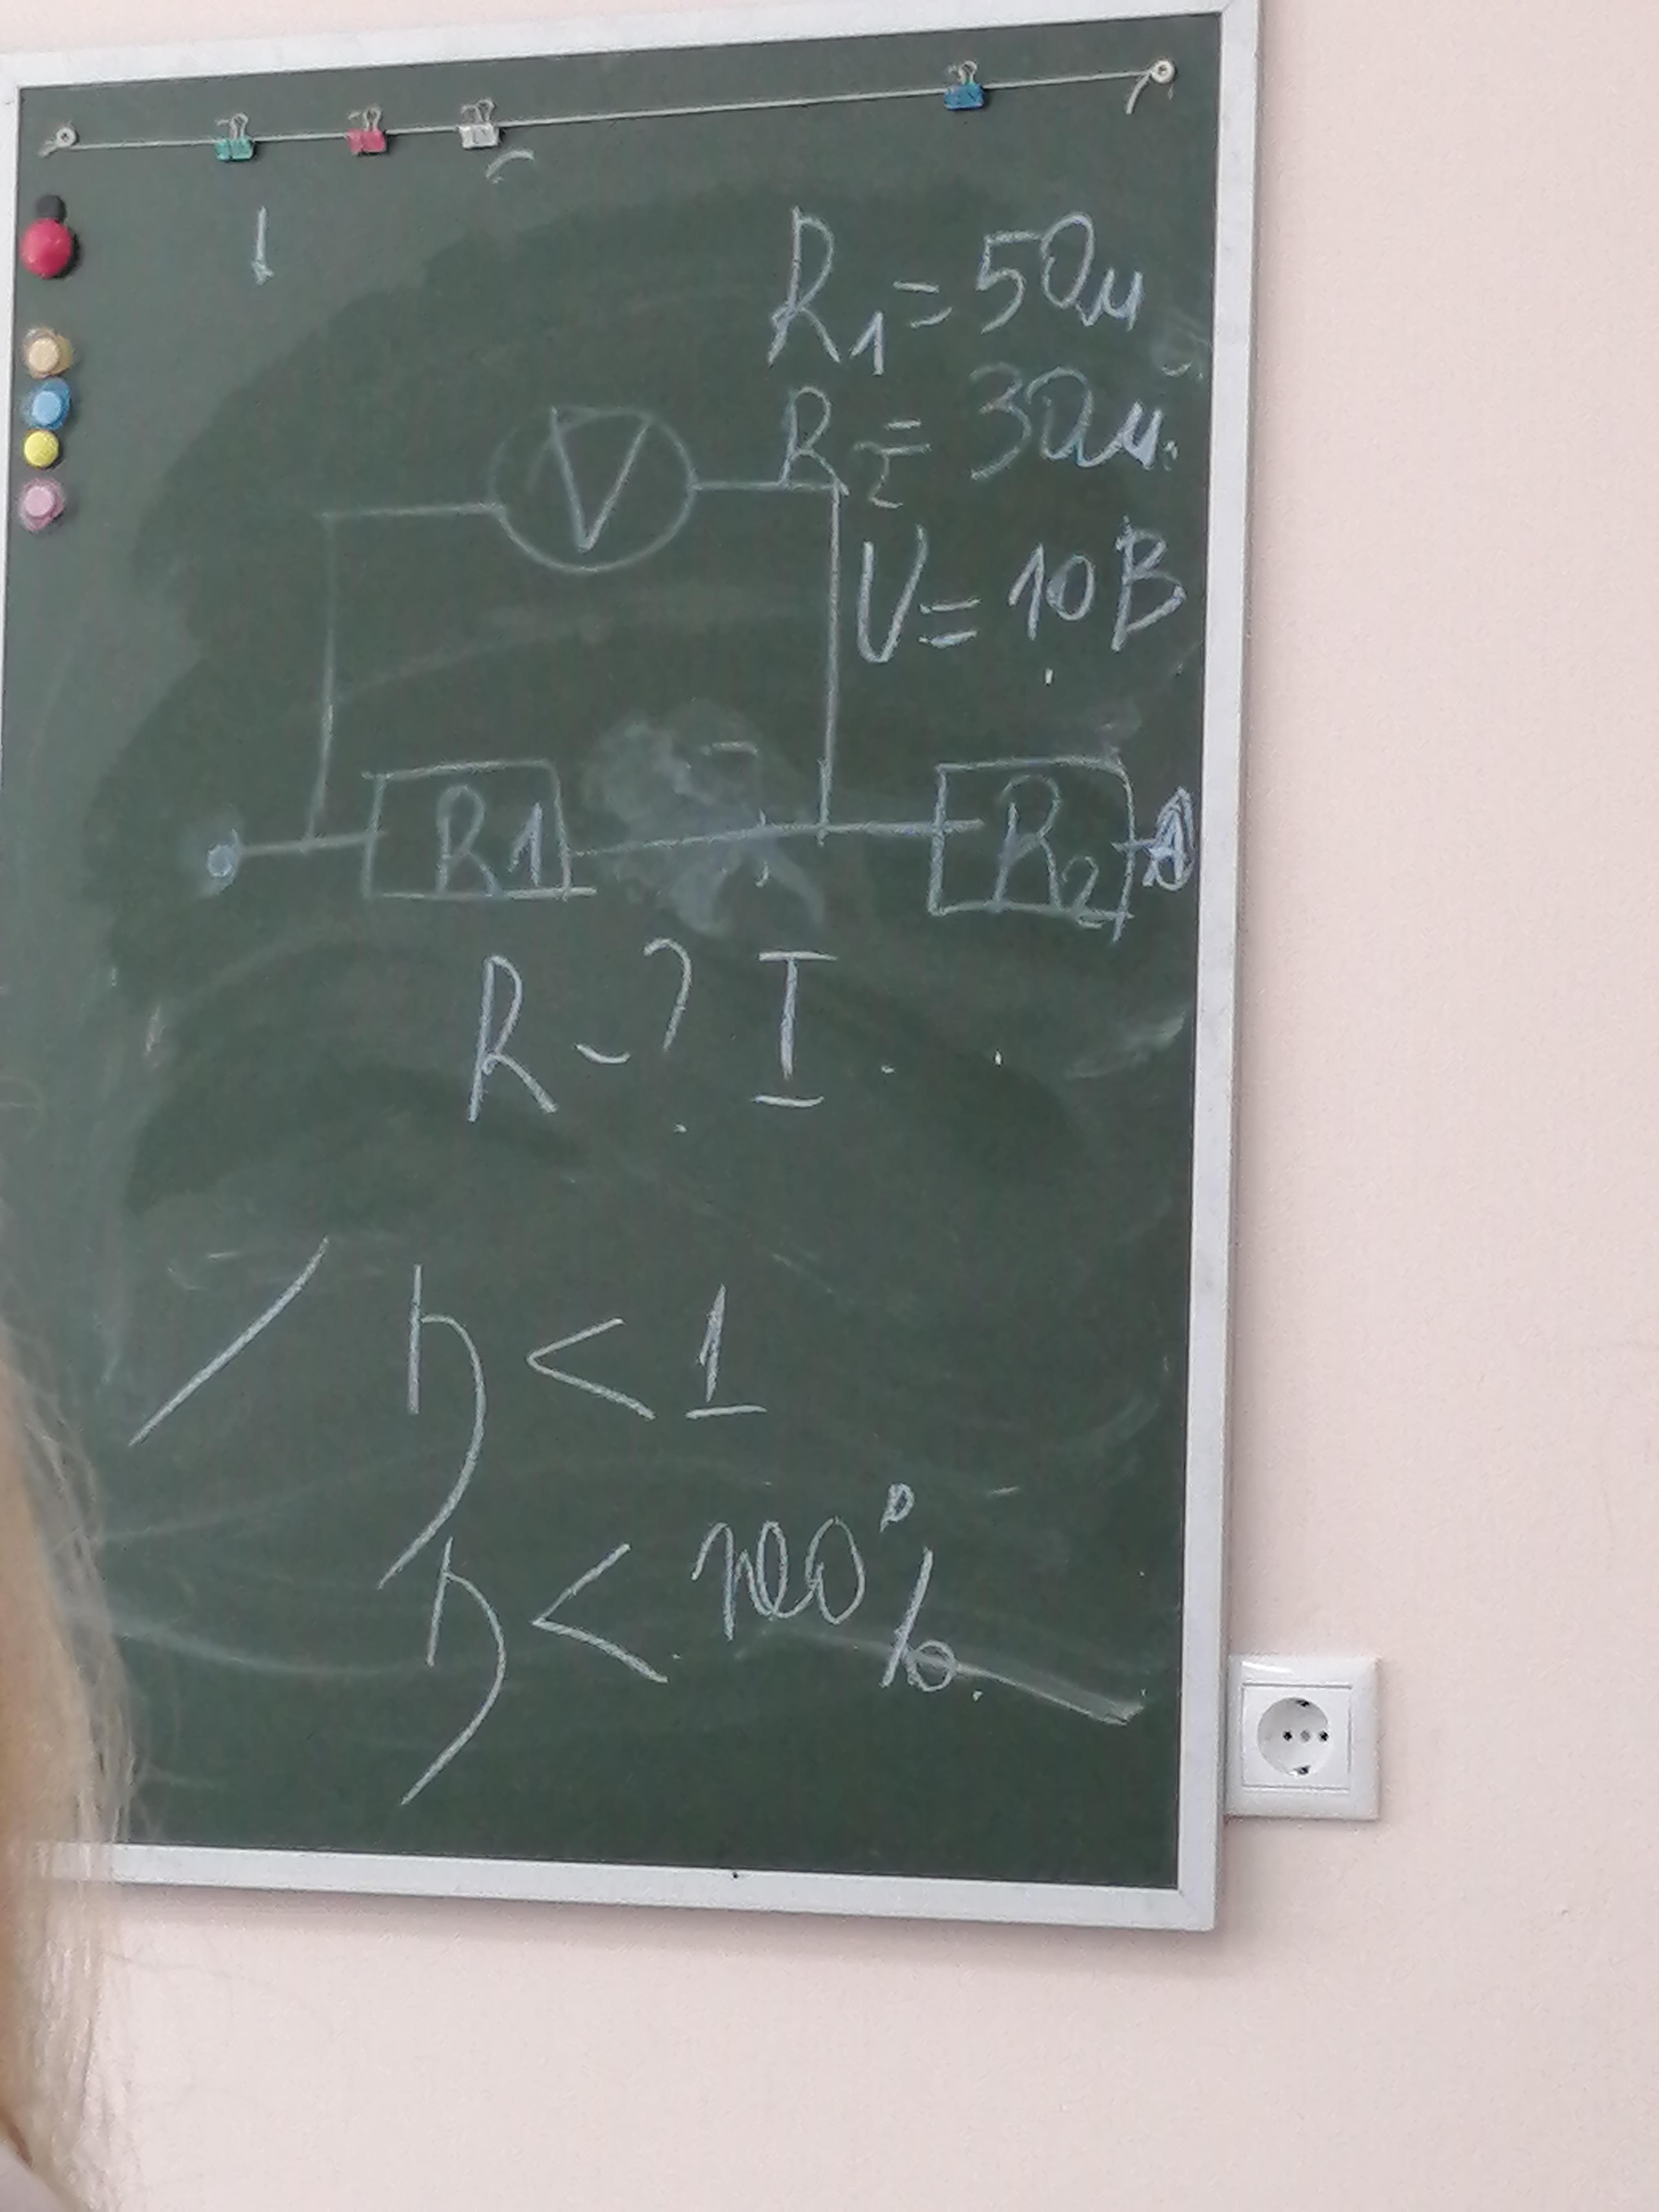 R₁ = 5 Ом
R₂ = 3 Ом
V
U = 10 В
R1
R₂
R - ? I
η < 1
η < 100%